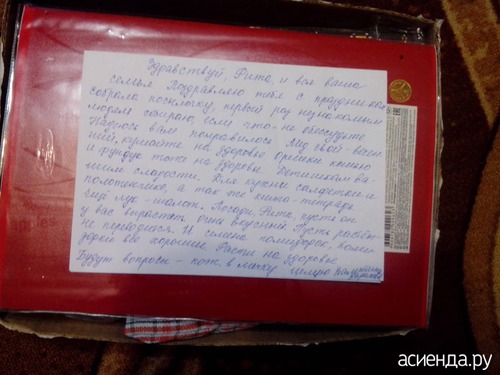 Здравствуй, Рита, и вся ваша
семья. Поздравляю тебя с праздником
собрала посылочку, первый раз незнакомым
людям собираю, если что - не обессудьте
Надеюсь вам понравилось. Мёд свой - весен-
ний, кушайте на здоровье орешки кешью
и фундук тоже на здоровье. Детишкам ва-
шим сладости. Для кухни салфетки и
полотенчико, а так же книга - тетрадь
Ещё лук - шалот. Посади, Рита, пусть он
у вас вырастет очень вкусный. Пусть
не переводится. И семена помидорок,
дорей все хорошие. Расти на здоровье
Будут вопросы - пож. в личку целую
асиенда.ру